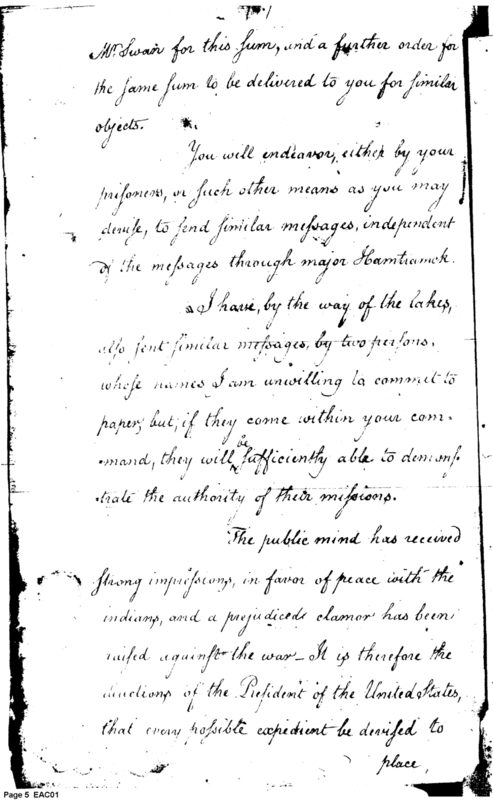 Mr. Swan for this sum, and a further order for
the same sum to be delivered to you for similar
objects.
You will endeavor, either by your
prisoners, or such other means as you may
devise, to send similar messages, independent
of the messages through major Hamtramck.
I have, by the way of the lakes,
also sent similar messages, by two persons,
whose names I am unwilling to commit to
paper, but, if they come within your com-
-mand, they will be sufficiently able to demons-
-trate the authority of their missions.
The public mind has received
strong impressions, in favor of peace with the
indians, and a prejudiced clamor has been
raised against the war_ It is therefore the
directions of the President of the United States,
that every possible expedient be devised to
place,
Page 5 EAC01